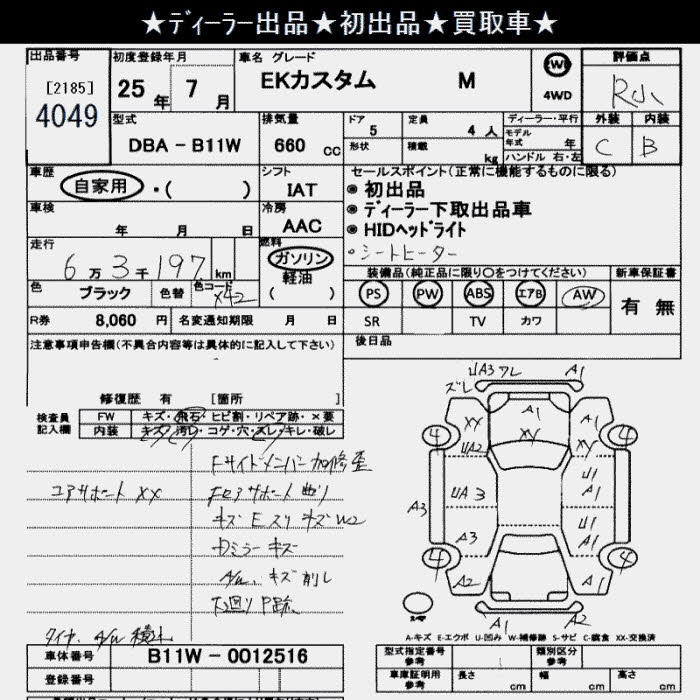 ★ディーラー出品★初出品★買取車★
出品番号 初度登録年月 車名 グレード 評価点
[2185] 4049
25年 7月
EKカスタム M
2WD 4WD
R
型式 排気量 ドア 定員 ディーラー・平行 外装 内装
DBA-B11W 660 cc 5 4人
モデル年式 年
形状 積載 kg ハンドル 右・左 C B
車歴 シフト セールスポイント(正常に機能するものに限る)
自家用・( ) IAT
●初出品
車検 冷房
年 月 日 AAC
●ディーラー下取出品車
●HIDヘッドライト
・シートヒーター
走行 燃料
6万3千197km ガソリン 軽油 ( )
装備品(純正品に限り○をつけてください) 新車保証書
色 ブラック 色替 色コード X42
PS PW ABS エアB AW 有 無
SR TV カワ
R券 8,060円 名変通知期限 月 日
後日品
注意事項申告欄(不具合内容等は具体的に記入して下さい)
修復歴 有 [箇所 ]
検査員記入欄 FW キズ・飛石・ヒビ割・リペア跡・×要
内装 キズ・汚レ・コゲ・穴・スレ・キレ・破レ
Fサイドメンバー
コアサポート XX
キズ Eスリキズ W2
ミラーキズ
A/W、キズ 削レ
下廻り
タイヤ、A/W 積込
UA3 ワレ A1
ズレ
XX A1 A1
XY
UA2
4 4
UA3 U1 A1
A3 U1 A1
A3 A1
4 4
A2 A1
A1 A2
A-キズ E-エクボ U-凹み W-補修跡 S-サビ C-腐食 XX-交換済
車体番号 B11W-0012516
登録番号
型式指定番号 参考 類別区分 参考
車庫証明用 参考 長さ cm 幅 cm 高さ cm